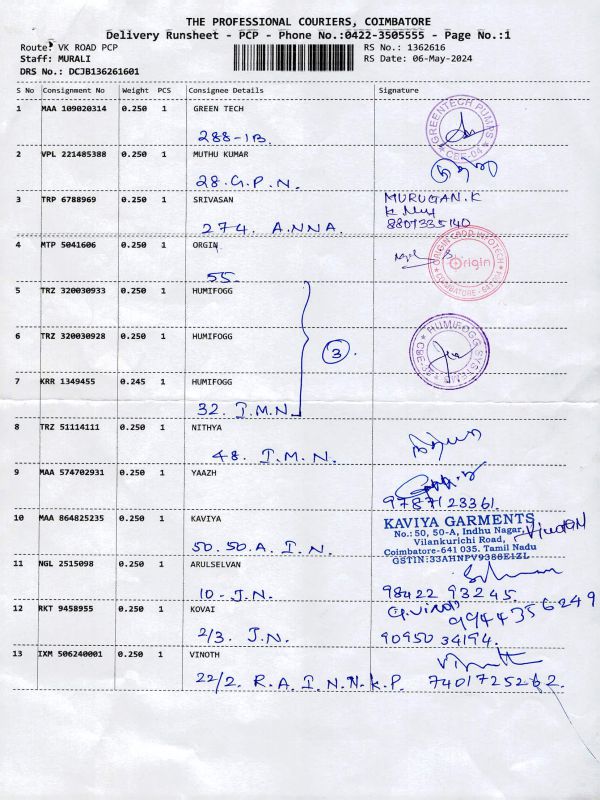 THE PROFESSIONAL COURIERS, COIMBATORE
Delivery Runsheet - PCP - Phone No.:0422-3505555 - Page No.:1
Route: VK ROAD PCP
RS No.: 1362616
Staff: MURALI
RS Date: 06-May-2024
DRS No.: DCJB136261601
S No Consignment No Weight PCS Consignee Details Signature
1 MAA 109020314 0.250 1 GREEN TECH
288-1B.
GREENTECH PUMPS
CBE-04
2 VPL 221485388 0.250 1 MUTHU KUMAR
28.G.P.N.
3 TRP 6788969 0.250 1 SRIVASAN MURUGAN.K
274. A.NNA. 8807335140
4 MTP 5041606 0.250 1 ORGIN
55.
Origin
5 TRZ 320030933 0.250 1 HUMIFOGG
6 TRZ 320030928 0.250 1 HUMIFOGG
3
HUMIFOGG
7 KRR 1349455 0.245 1 HUMIFOGG
32. I.M.N.
8 TRZ 51114111 0.250 1 NITHYA
48. I.M.N.
9 MAA 574702931 0.250 1 YAAZH
9787123361.
10 MAA 864825235 0.250 1 KAVIYA
50.50.A. I.N.
KAVIYA GARMENTS
No.: 50, 50-A, Indhu Nagar,
Vilankurichi Road,
Coimbatore-641 035. Tamil Nadu
GSTIN:33AHNPV9386E1ZL
11 NGL 2515098 0.250 1 ARULSELVAN
10-I.N. 98422 93245
12 RKT 9458955 0.250 1 KOVAI
9944356249
2/3. I.N. 90950 34194.
13 IXM 506240001 0.250 1 VINOTH
22/2. R.A.I.N.N.K.P. 7401725262.